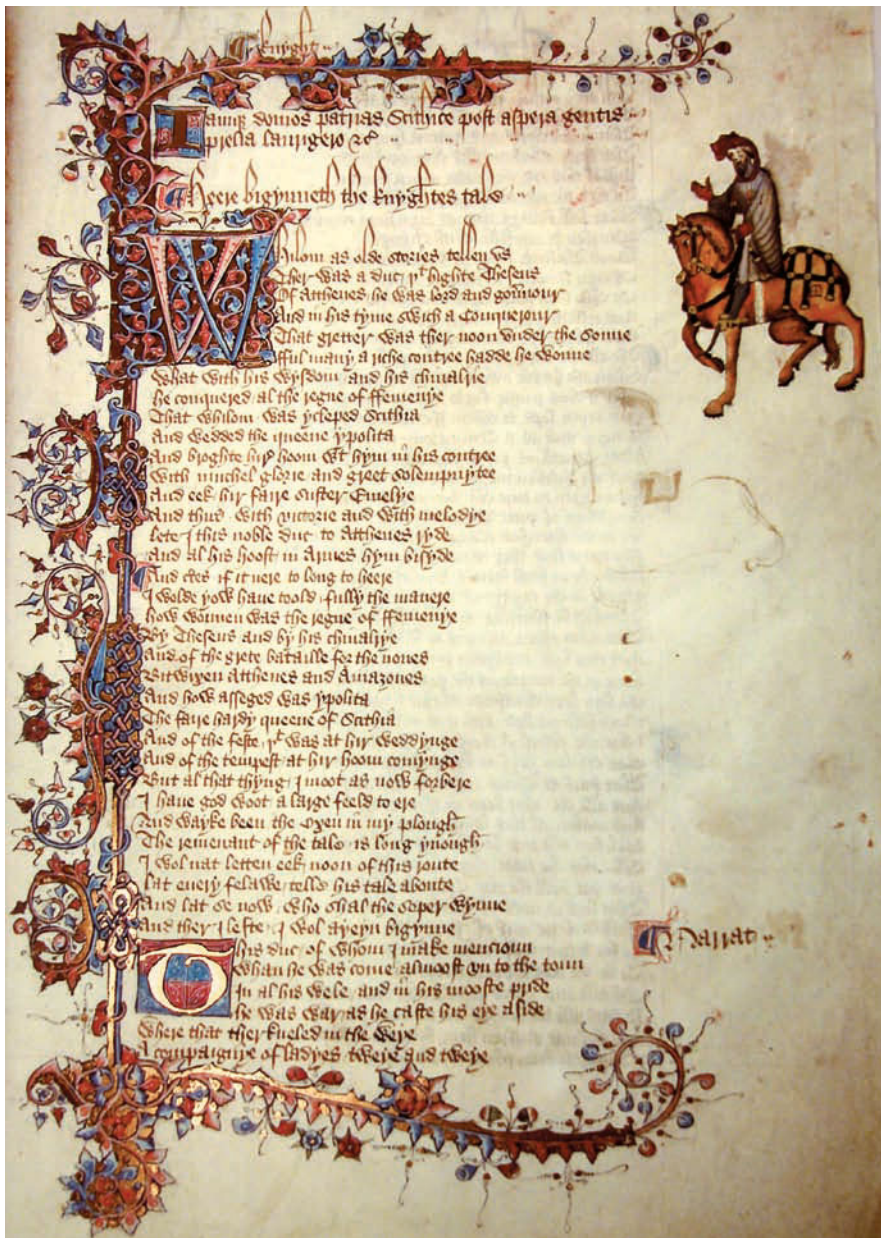 Knyght
Iamque domos patrias Scithice post aspera gentis
prelia laurigero &c
Heere bigynneth the knyghtes tale
Whilom as olde stories tellen vs
Ther was a duc þt highte Theseus
Of Atthenes he was lord and gouernour
And in his tyme swich a Conquerour
That gretter was ther noon vnder the sonne
fful many a riche contree hadde he wonne
What with his wysdom and his chiualrie
he conquered al the regne of ffemenye
That whilom was ycleped Scithia
And wedded the queene ypolita
And broghte hir hoom wt hym in his contree
With muchel glorie and greet solempnytee
And eek hir faire suster Emelye
And thus with victorie and with melodye
lete I this noble duc to Atthenes ryde
And al his hoost in Armes hym bisyde
And certes if it nere to long to heere
I wolde yow haue toold fully the manere
how wonnen was the regne of ffemenye
By Theseus and by his chiualrye
And of the grete bataille for the nones
Bitwixen Atthenes and Amazones
And how asseged was ypolita
The faire hardy queene of Scithia
And of the feste þt was at hir weddynge
And of the tempest at hir hoom comynge
But al that thyng I moot as now forbere
I haue god woot a large feeld to ere
And wayke been the Oxen in my plough
The remenant of the tale is long ynough
I wol nat letten eek noon of this route
lat euery felawe telle his tale aboute
And lat se now who shal the soper wynne
And ther I lefte I wol ayeyn bigynne
This duc of whom I make mencioun
Whan he was come almoost vn to the toun
In al his wele and in his mooste pride
he was war as he caste his eye aside
Where that ther kneled in the weye
A compaignye of ladyes tweye and tweye
Narrat